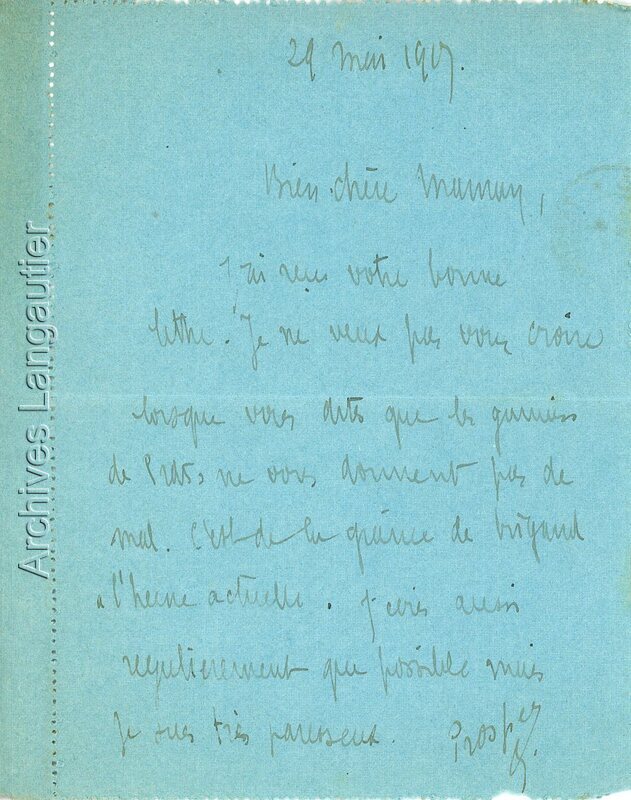 29 mai 1917.
Bien chère Maman,
J'ai reçu votre bonne
lettre. Je ne veux pas vous croire
lorsque vous dites que les gamins
de Prats ne vous donnent pas de
mal. C'est de la graine de brigand
à l'heure actuelle. J'écris aussi
regulierement que possible mais
je suis très paresseux. Prosper
Archives Langautier